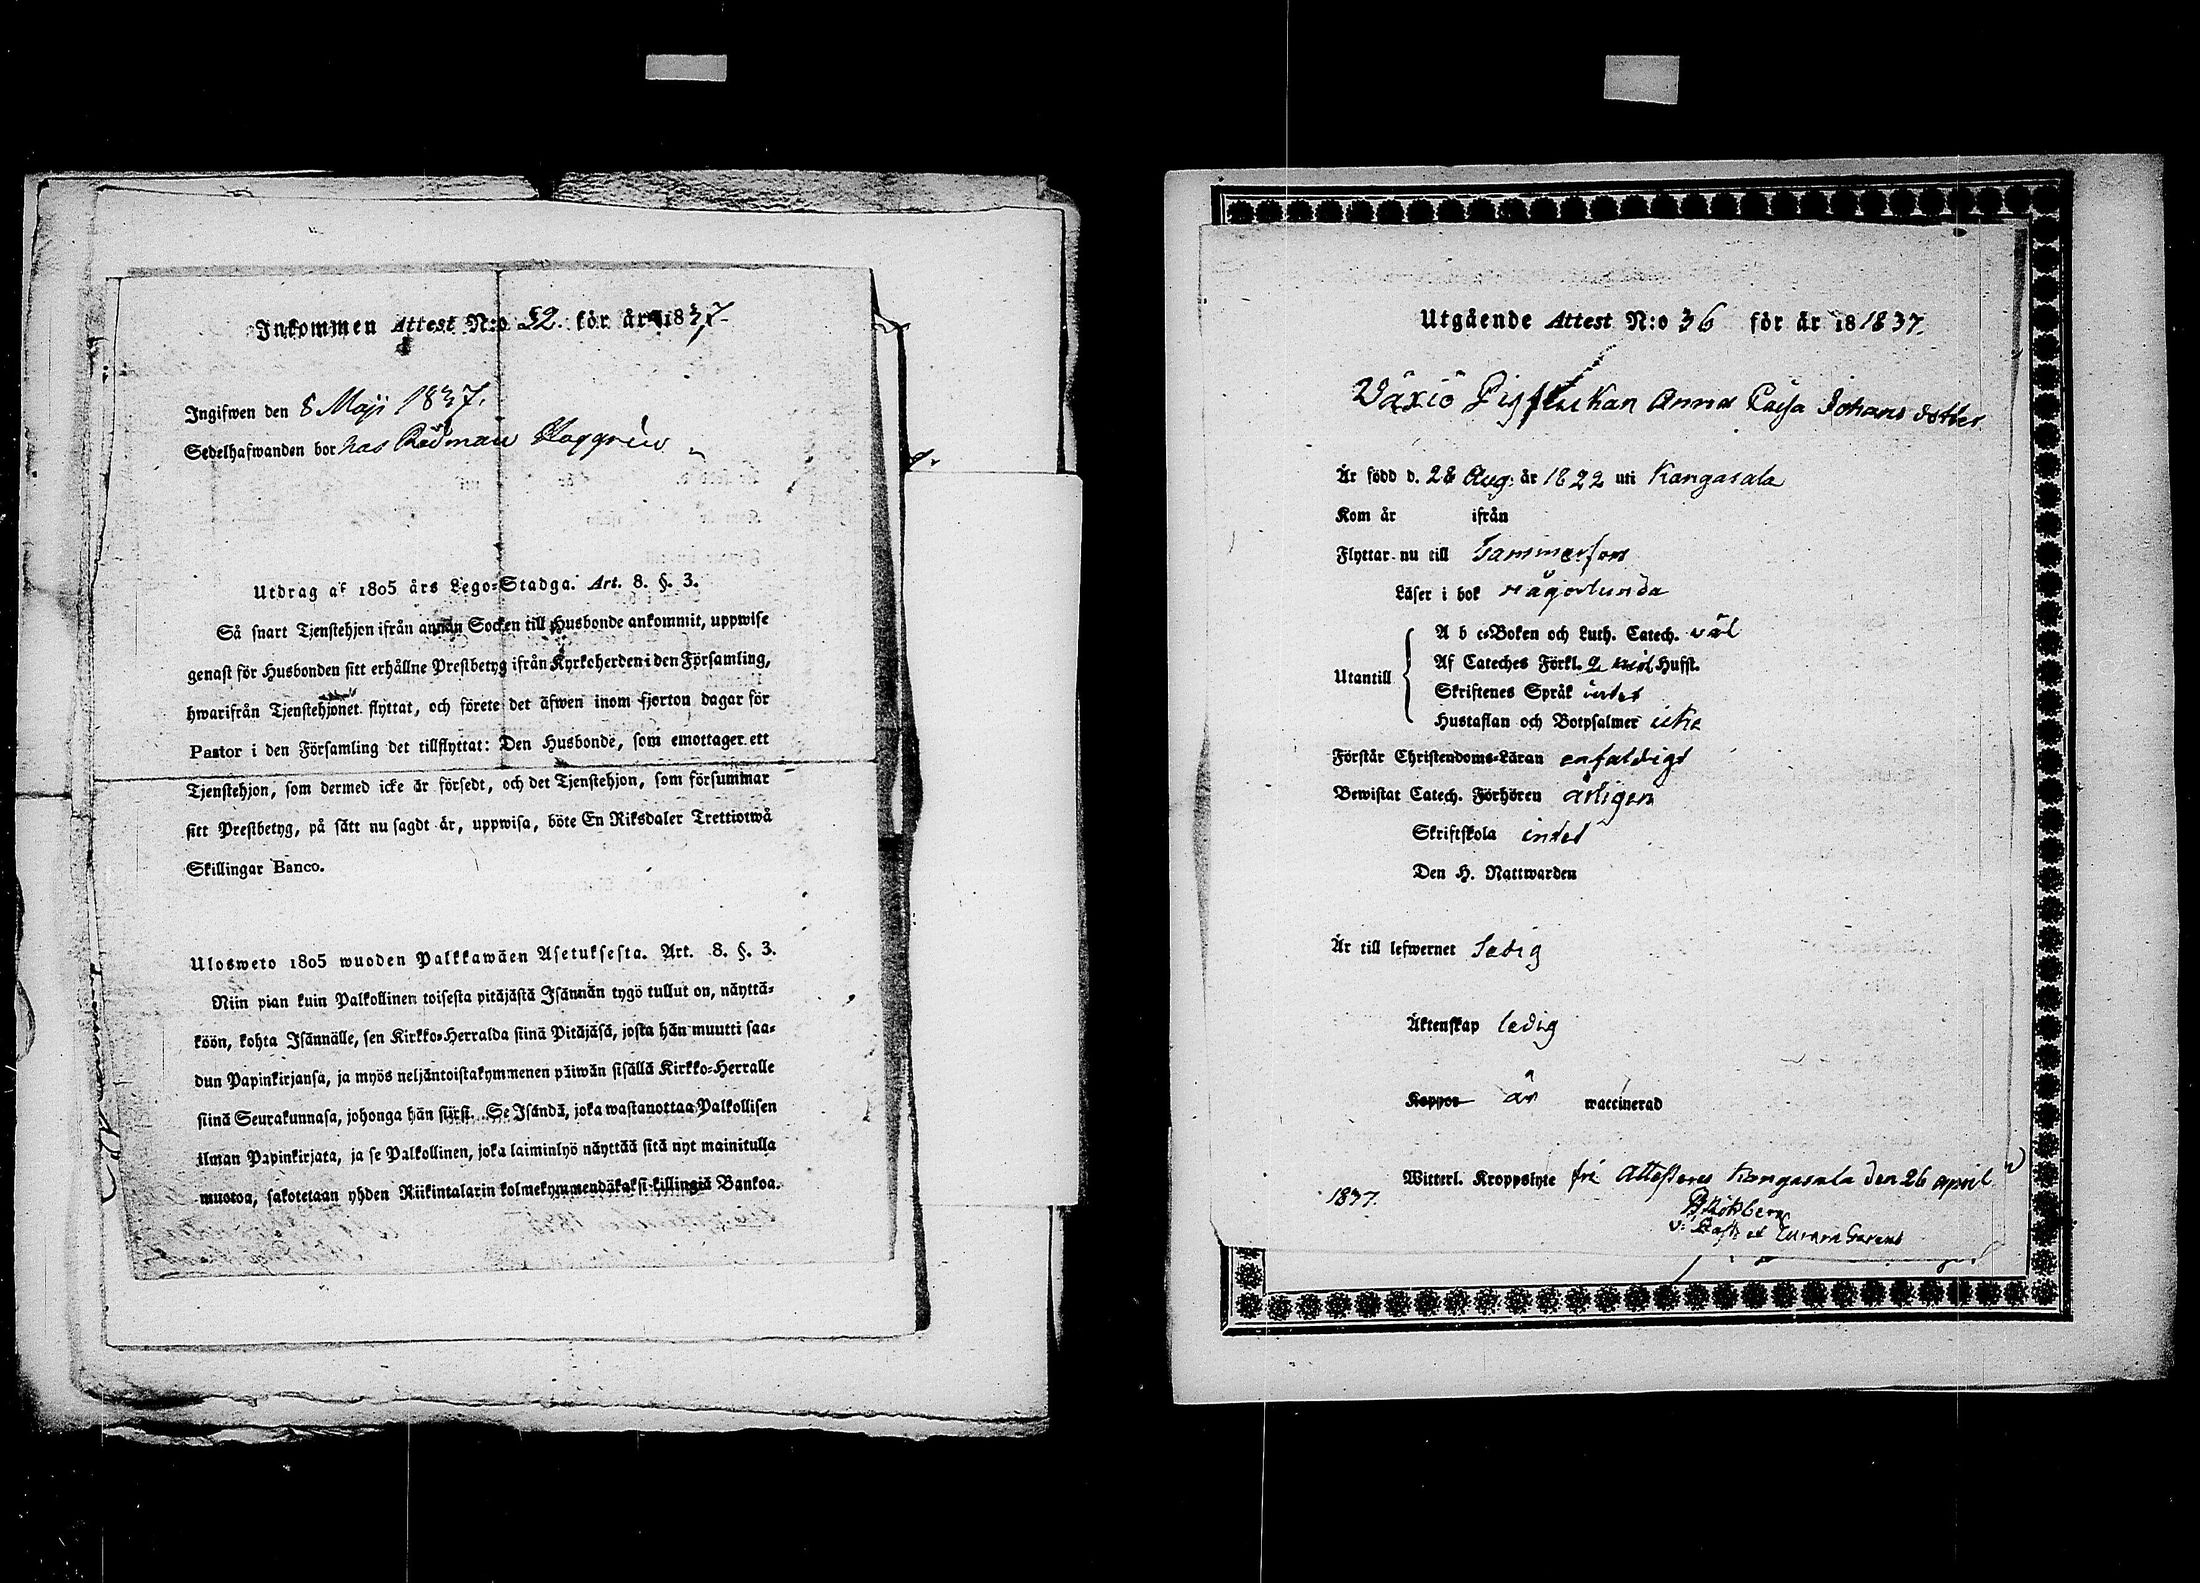 Inkommen Attest N:o 52. för år 1837
Ingifwen den 8 Maji 1837.
Sedelhafwanden bor hos Rådman
Utdrag af 1805 års Lego-Stadga. Art. 8. §. 3.
Så snart Tjenstehjon ifrån annan Socken till Husbonde ankommit, uppwise
genast för Husbonden sitt erhållne Prestbetyg ifrån Kyrkoherden i den Församling,
hwarifrån Tjenstehjonet flyttat, och förete det äfwen inom fjorton dagar för
Pastor i den Församling det tillflyttat: Den Husbonde, som emottager ett
Tjenstehjon, som dermed icke är försedt, och det Tjenstehjon, som försummar
sitt Prestbetyg, på sätt nu sagdt är, uppwisa, böte En Riksdaler Trettiotwå
Skillingar Banco.
Ulosweto 1805 wuoden Palkkawäen Asetuksesta. Art. 8. §. 3.
Niin pian kuin Palkollinen toisesta pitäjästä Isännän tygö tullut on, näyttä-
köön, kohta Isännälle, sen Kirkko-Herralda siinä Pitäjäsä, josta hän muutti saa-
dun Papinkirjansa, ja myös neljäntoistakymmenen päiwän sisällä Kirkko-Herralle
siinä Seurakunnasa, johonga hän siirsi. Se Isändä, joka wastanottaa Palkollisen
ilman Papinkirjata, ja se Palkollinen, joka laiminlyö näyttää sitä nyt mainitulla
muotoa, sakotetaan yhden Riikintalarin kolmekymmendäkaksi killingiä Bankoa.
Utgående Attest N:o 36 för år 18 1837.
Wäxiö Pig flickan Anna Caisa Johansdotter
Är född d. 28 Aug: år 1822 uti Kangasala
Kom år ifrån
Flyttar nu till Tammerfors
Läser i bok någorlunda
Utantill
A b c-Boken och Luth. Catech. väl
Af Cateches Förkl. 2 Hufst.
Skriftenes Språk intet
Hustaflan och Botpsalmer icke
Förstår Christendoms-Läran enfaldigt
Bewistat Catech. Förhören årligen
Skriftskola intet
Den H. Nattwarden
Är till lefwernet Sedig
Äktenskap ledig
Koppor är waccinerad
Witterl. Kroppslyte fri Attesteres Kangasala den 26 april
1837.
v: Past.